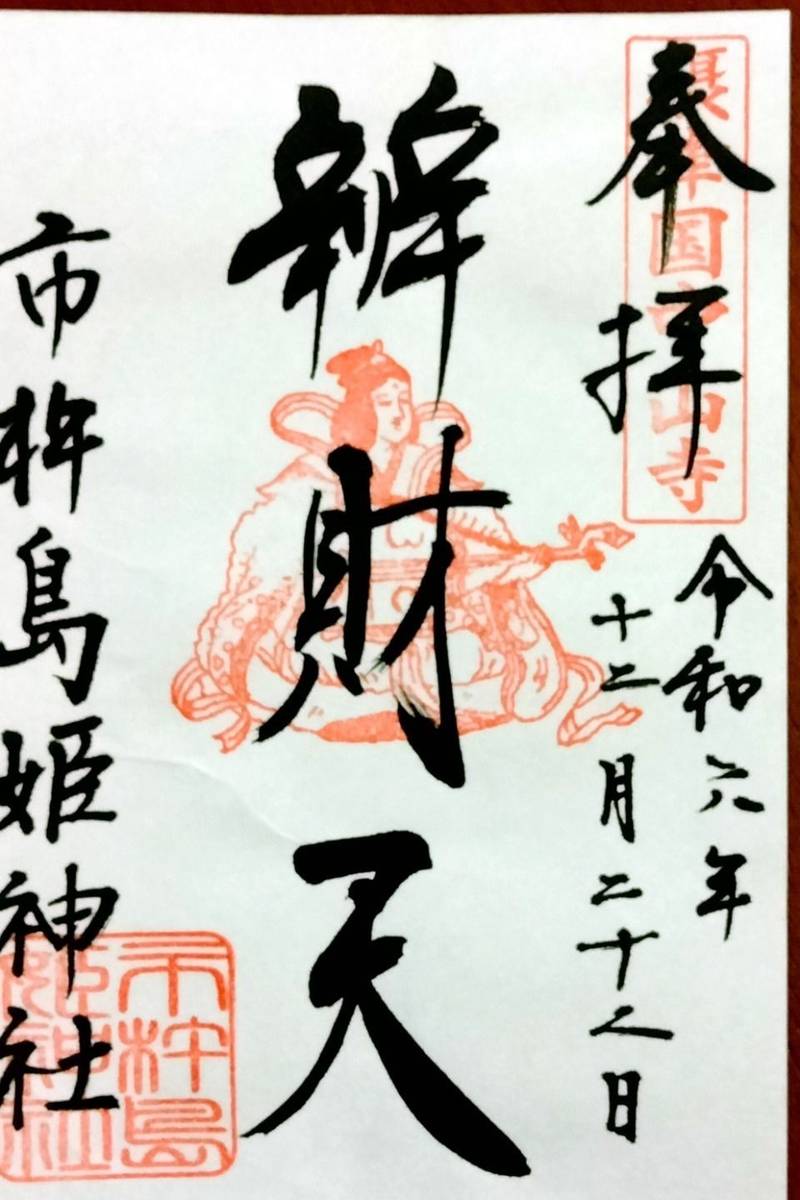 奉拝
摂津国中山寺
令和六年
十二月二十八日
辨財天
市杵島姫神社
市杵島
姫神社